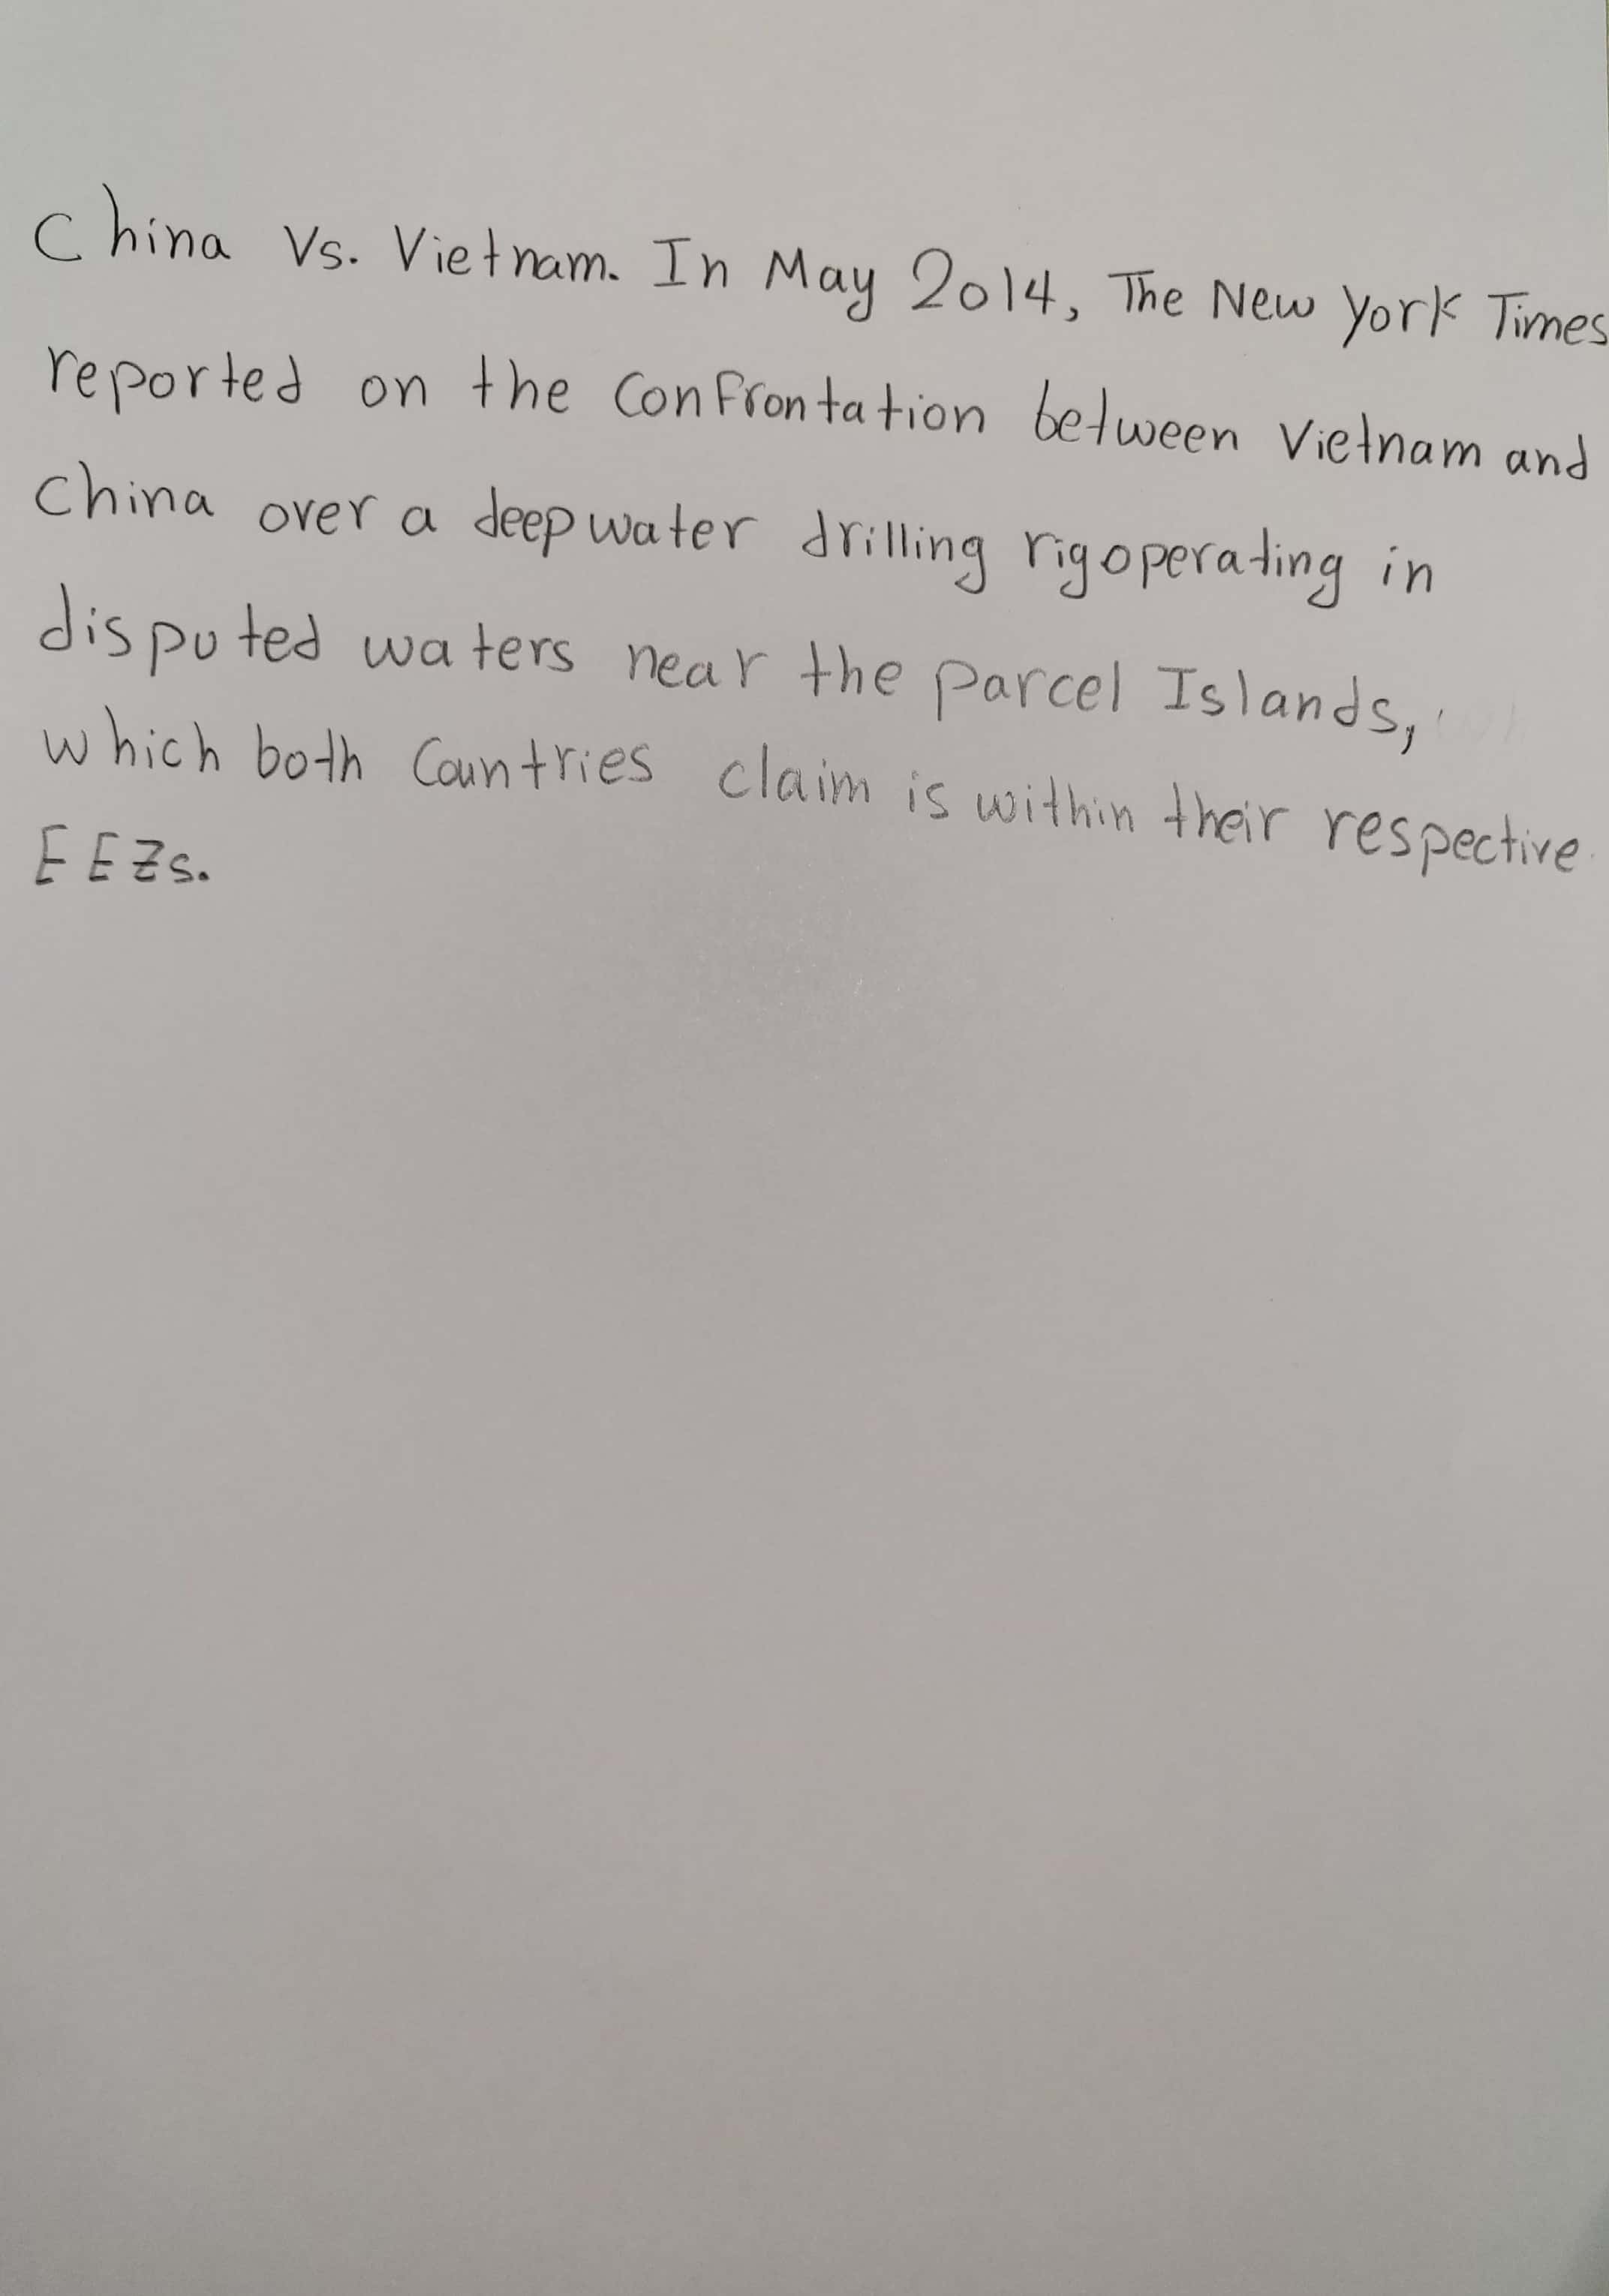 China Vs. Vietnam. In May 2014, The New York Times
reported on the confrontation between Vietnam and
China over a deepwater drilling rig operating in
disputed waters near the parcel Islands,
which both Countries claim is within their respective
EEZs.